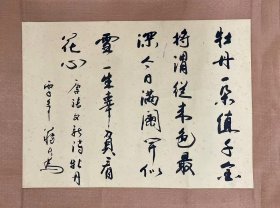 牡丹一朵值千金
将谓从来色最
深今日满阑开似
雪一生辜負看
花心
唐张又新诗牡丹